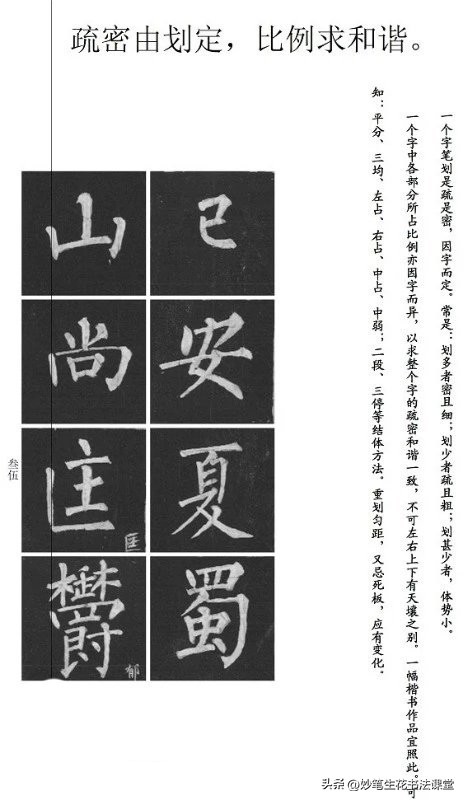 疏密由划定，比例求和谐。
一个字笔划是疏是密，因字而定。常是：划多者密且细；划少者疏且粗；划甚少者，体势小。
一个字中各部分所占比例亦因字而异，以求整个字的疏密和谐一致，不可左右上下有天壤之别。一幅楷书作品宜照此。可
知：平分、三均、左占、右占、中占、中弱；二段、三停等结体方法。重划匀距，又忌死板，应有变化。
已
安
夏
蜀
山
尚
匡
匡
鬱
郁
叁伍
头条 @妙笔生花书法课堂